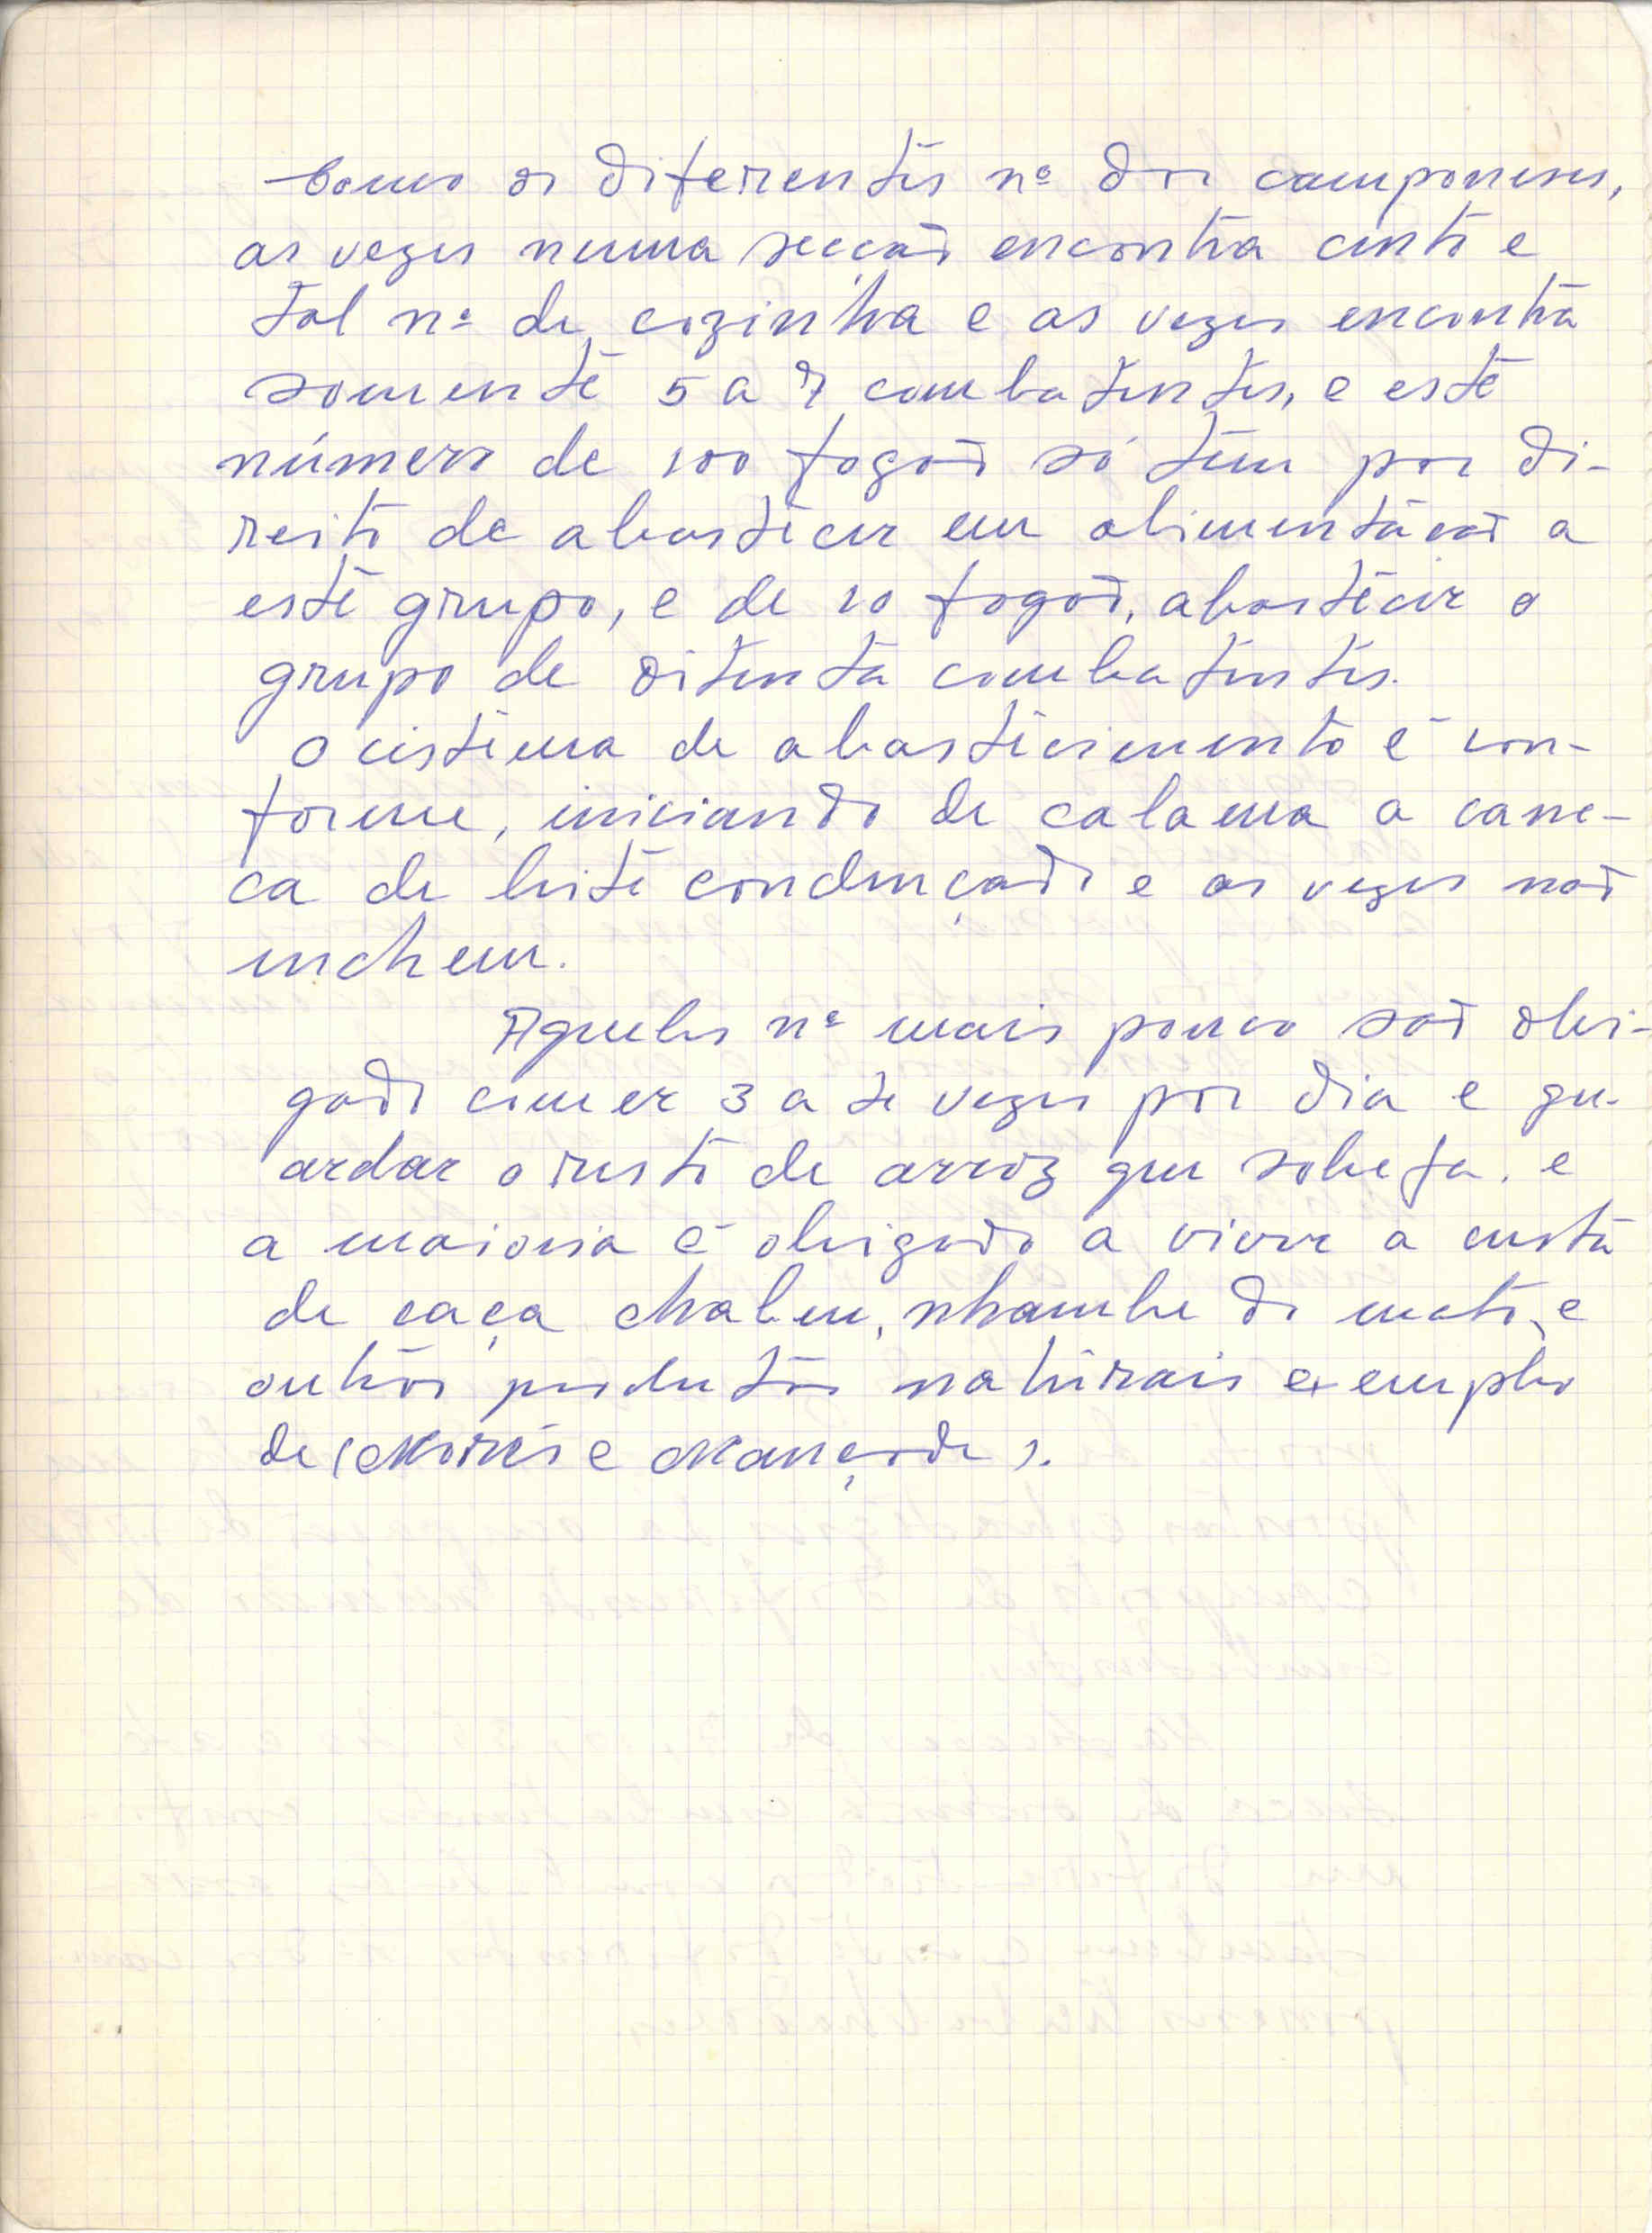 Como os diferentes nº dos camponeses,
as vezes numa secção encontra cento e
tal nº de cozinha e as vezes encontra
somente 5 a 7 combatentes, e este
número de 100 fogão só tem por di-
reito de abastecer em alimentação a
este grupo, e de 10 fogão, abastecer o
grupo de oitenta combatentes.
O cistema de abastecimento é con-
forme, iniciando de calama a cane-
ca de leite condençado e as vezes não
enchem.
Aqueles nº mais pouco são obri-
gado comer 3 a 4 vezes por dia e gu-
ardar o resto de arroz que sobeja. e
a maioria é obrigado a viver a custa
de caça chabeu, nhambe do mato, e
outros produtos naturais exemplo
de (